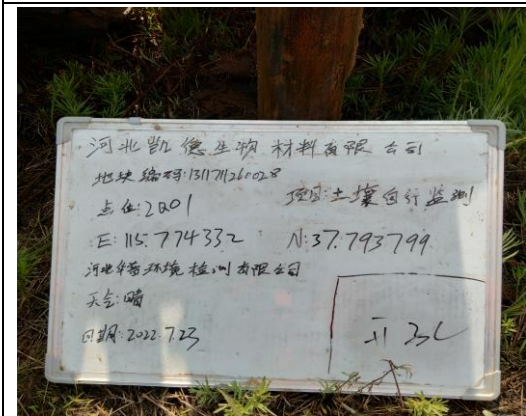 河北凯德生物材料有限公司
地块编码:1311711260028
点位:2Q01 项目:土壤自行监测
E:115.774332 N:37.793799
河北华普环境检测有限公司
天气:晴
日期:2022.7.23
开孔